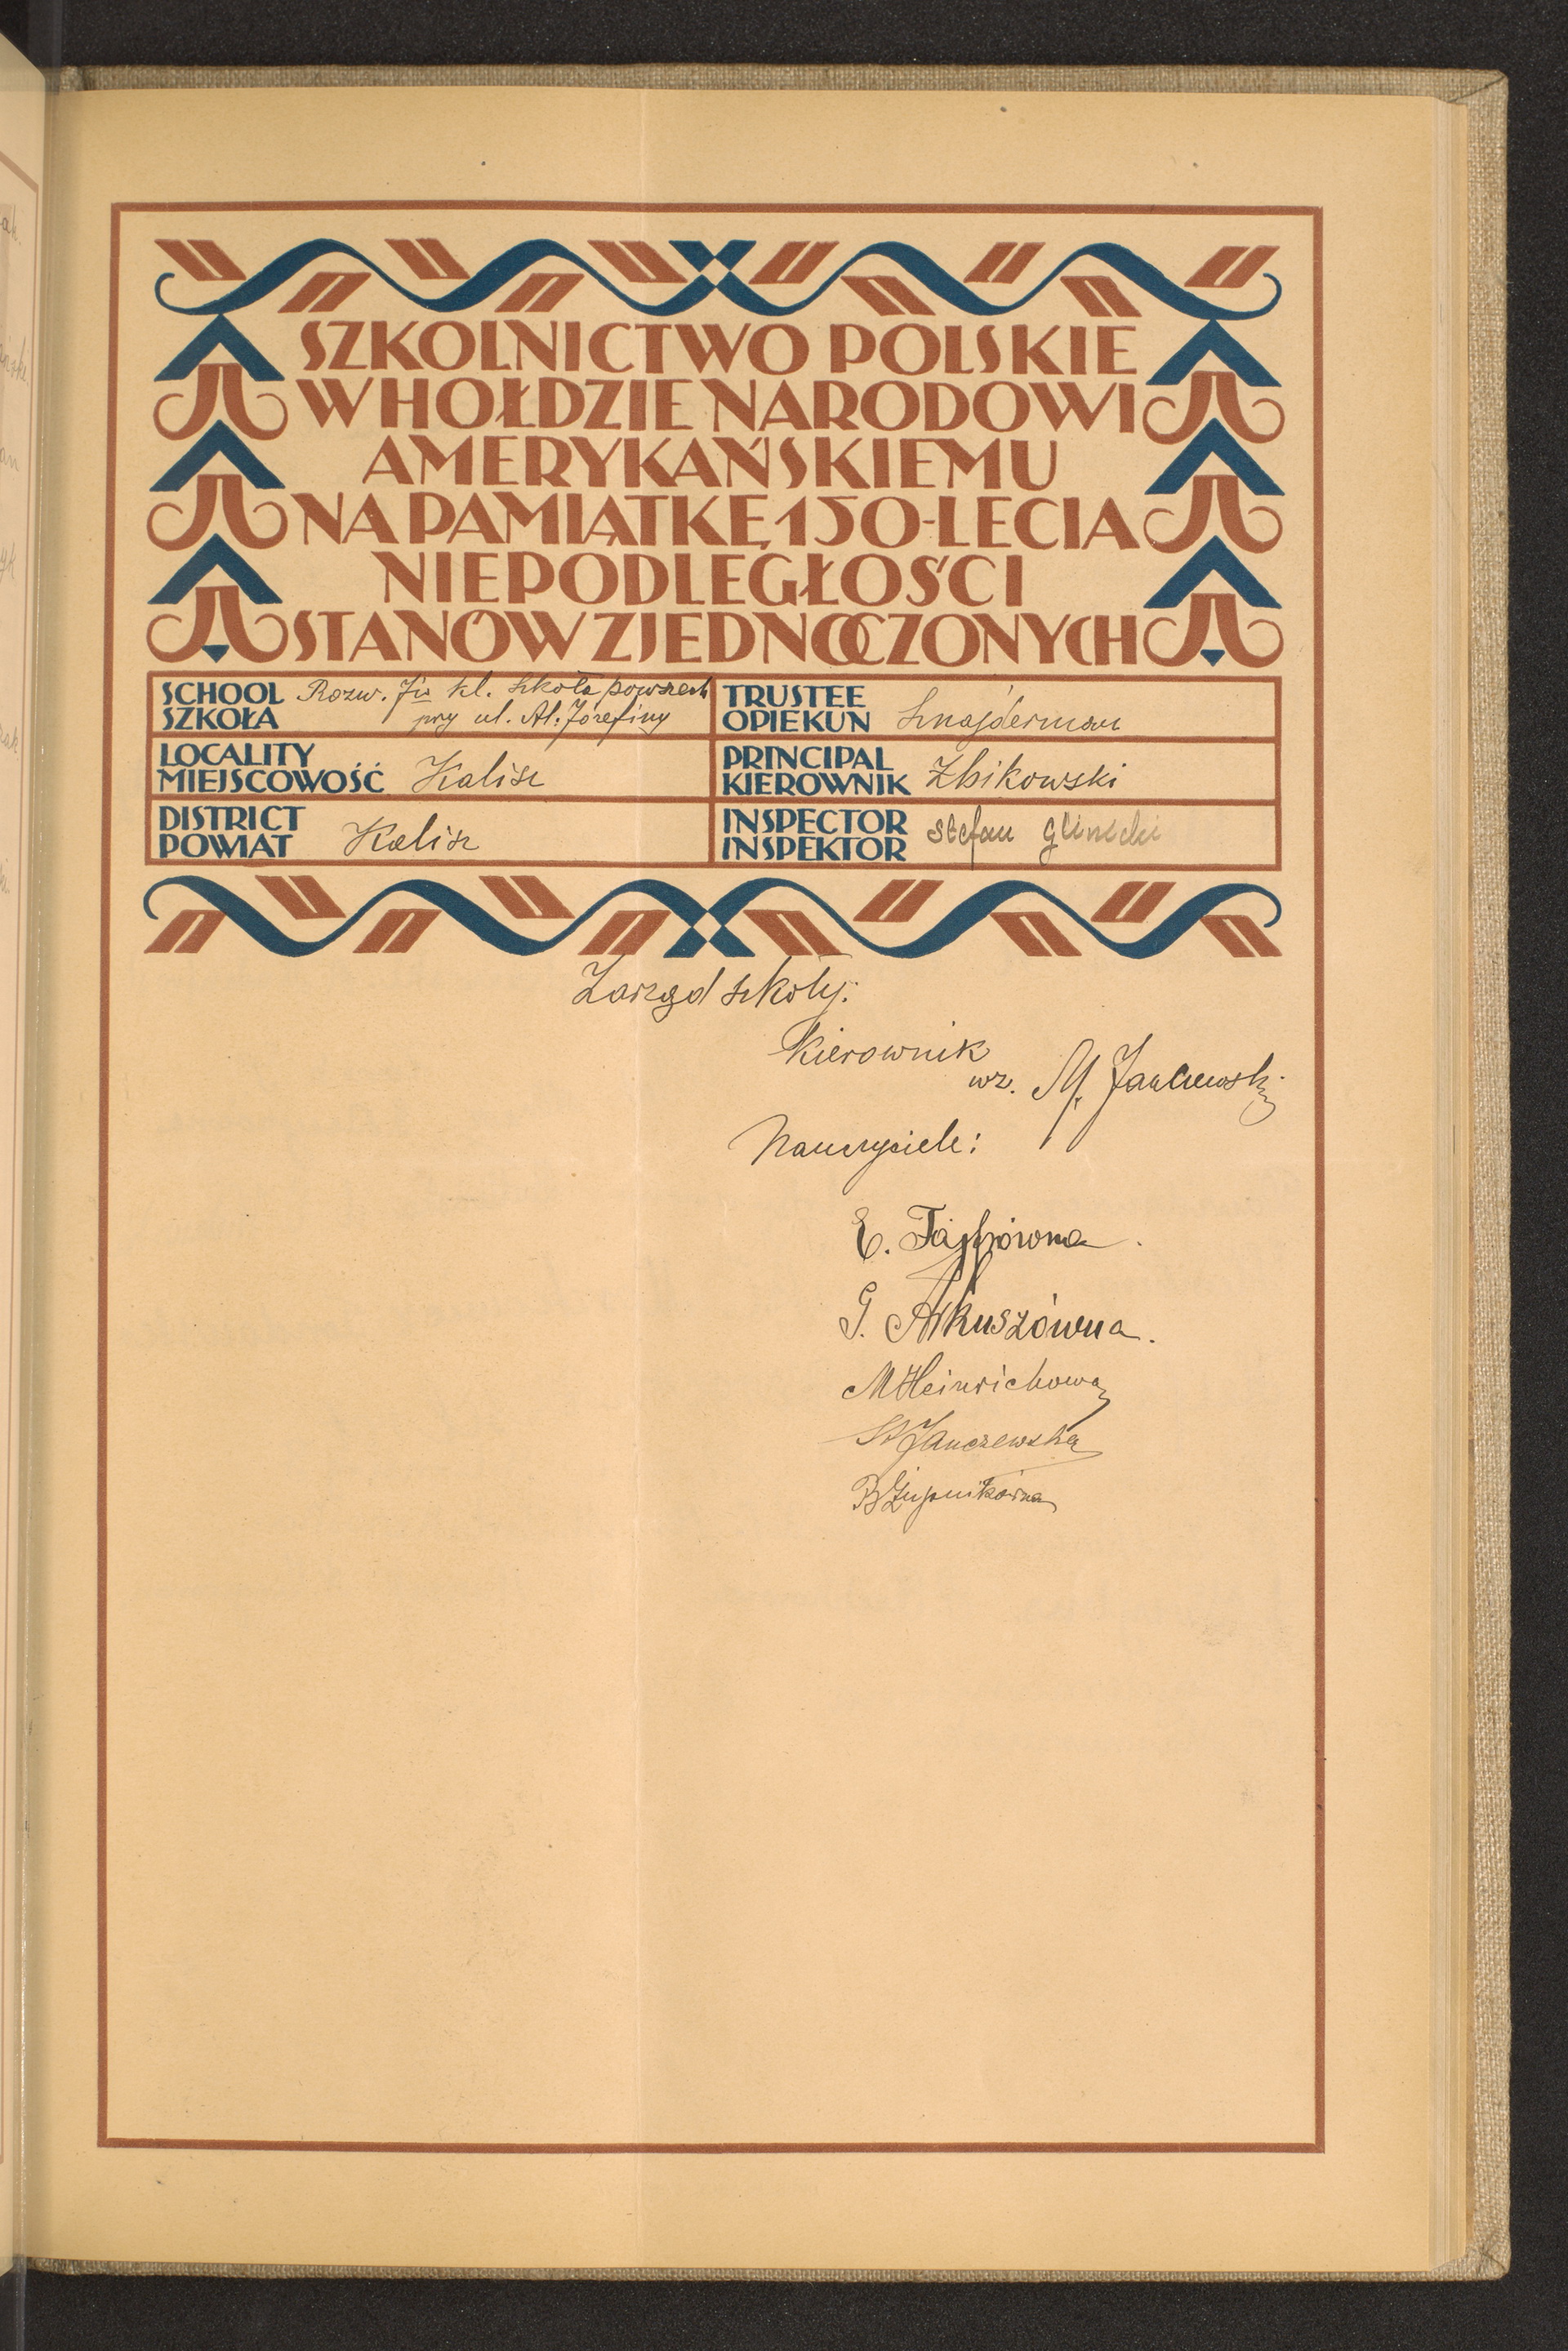 SZKOLNICTWO POLSKIE
W HOŁDZIE NARODOWI
AMERYKAŃSKIEMU
NA PAMIĄTKĘ 150-LECIA
NIEPODLEGŁOŚCI
STANÓW ZJEDNOCZONYCH
SCHOOL
SZKOŁA
Rozw. kl. szkoła powszech
przy ul. Al. Józefiny
TRUSTEE
OPIEKUN
Sznajderman
LOCALITY
MIEJSCOWOŚĆ
Kalisz
PRINCIPAL
KIEROWNIK
Zbikowski
DISTRICT
POWIAT
Kalisz
INSPECTOR
INSPEKTOR
Stefan Glinicki
Zarząd szkoły:
Kierownik
wz. M. Janczewski
Nauczyciele:
E. Tajfrówna.
G. Arkuszówna.
M Heinrichowa
St Janczewska
B Żupnikówna